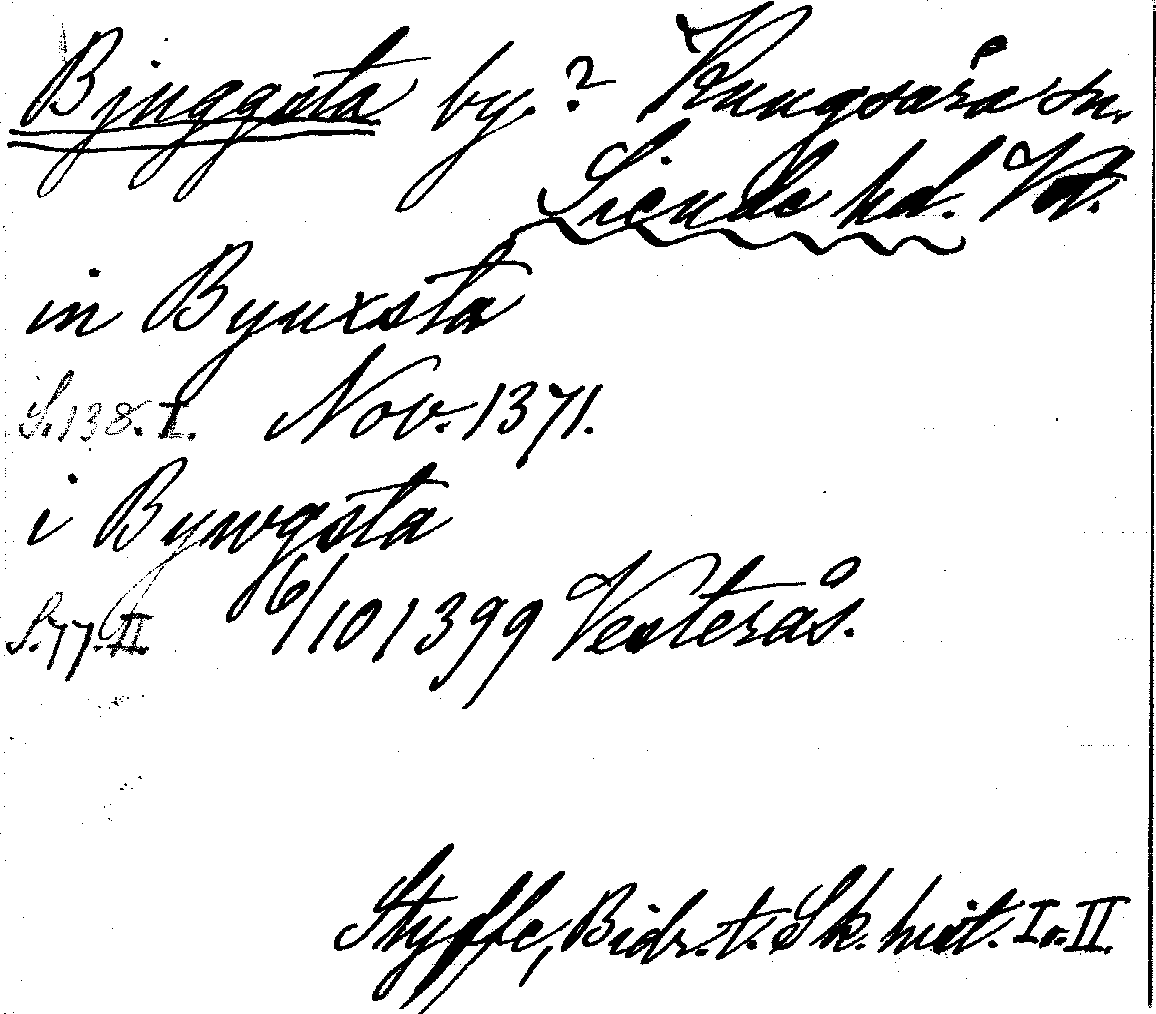 Bjuggsta by.? Kungsåra sn.
Siende hd. Vstm.
in Byuxsta
S. 138. I. Nov. 1371.
i Bywgsta
S. 77. II 6/10 1399 Vesterås.
Styffe, Bidr. t. Sk. hist. I o. II.